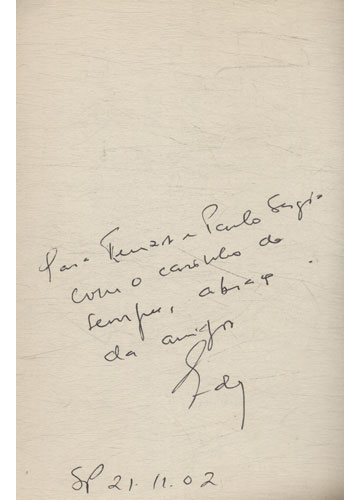 Para e Paulo Sergio
com o carinho de
sempre, abraço
da amiga
SP 21.11.02